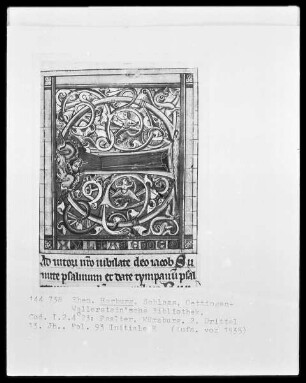 XVLTATE DEO
Ad iutori nro iubilate deo iacob Su
mite psalmum et date tympanum psal
144 750 Ehem. Harburg. Schloss. Oettingen-
Wallerstein'sche Bibliothek.
Cod. I.2.4°23: Psalter. Würzburg. 2. Drittel
13. Jh., Fol. 93 Initiale E (Aufn. vor 1955)